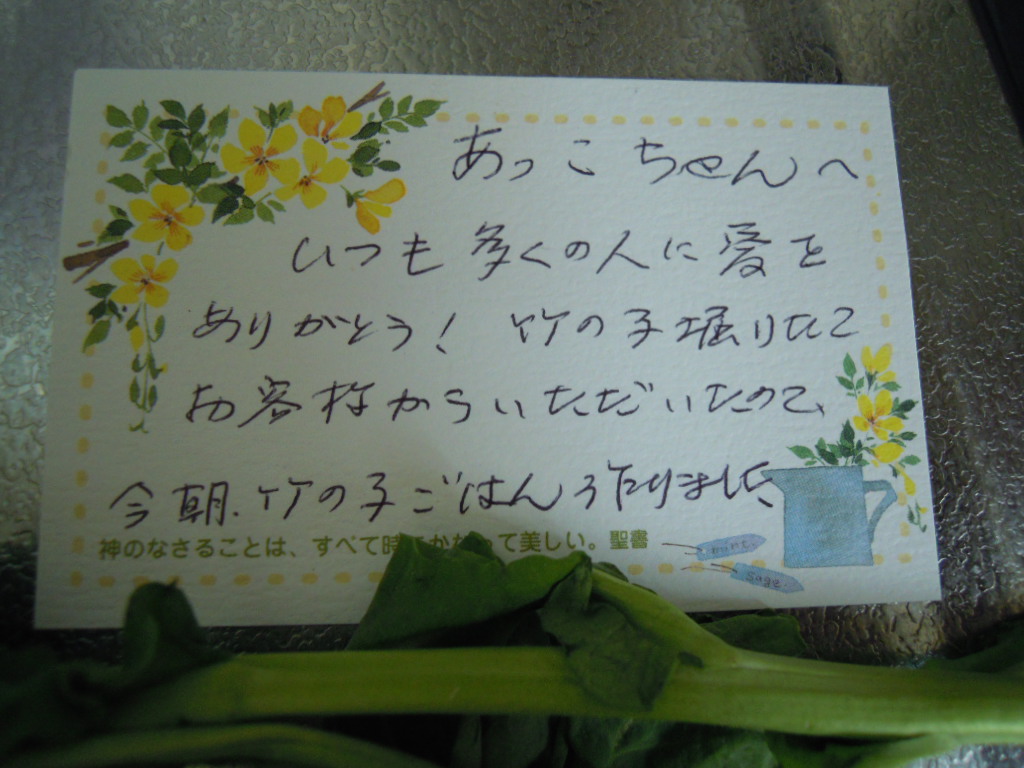 あっこちゃんへ
いつも多くの人に愛を
ありがとう! 竹の子堀りたて
お客様からいただいたので、
今朝、竹の子ごはん作りました
神のなさることは、すべて時にかなって美しい。聖書
mint
Sage